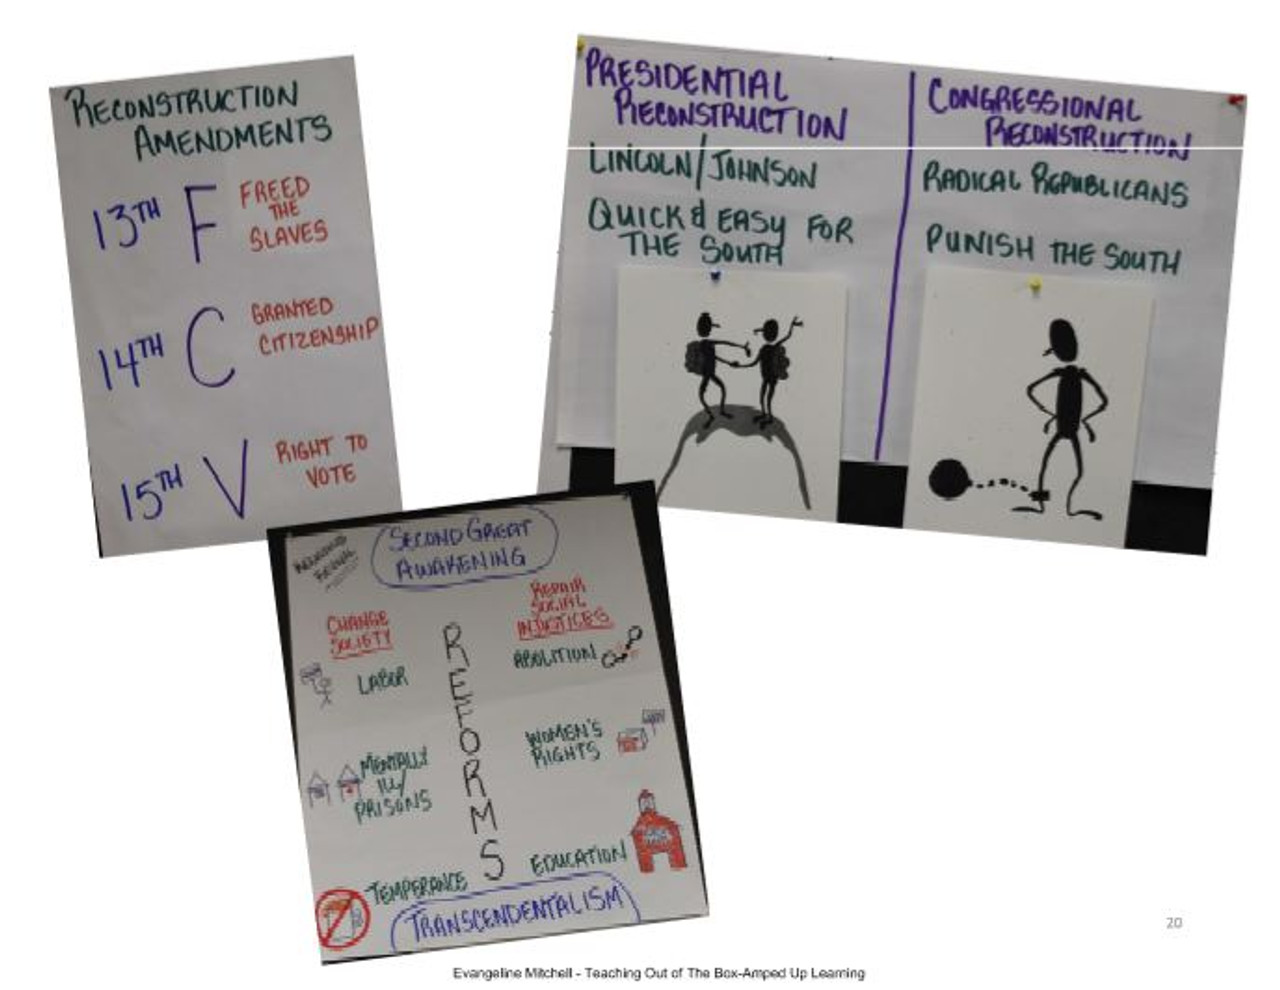 RECONSTRUCTION
AMENDMENTS
13TH F FREED
THE
SLAVES
14TH C GRANTED
CITIZENSHIP
15TH V RIGHT TO
VOTE
PRESIDENTIAL
RECONSTRUCTION
LINCOLN/JOHNSON
QUICK & EASY FOR
THE SOUTH
CONGRESSIONAL
RECONSTRUCTION
RADICAL REPUBLICANS
PUNISH THE SOUTH
SECOND GREAT
AWAKENING
REVIVAL
CHANGE
SOCIETY
LABOR
MENTALLY
ILL/
PRISONS
TEMPERANCE
REFORMS
REPAIR
SOCIAL
INJUSTICES
ABOLITION
WOMEN'S
RIGHTS
EDUCATION
TRANSCENDENTALISM
20
Evangeline Mitchell - Teaching Out of The Box-Amped Up Learning